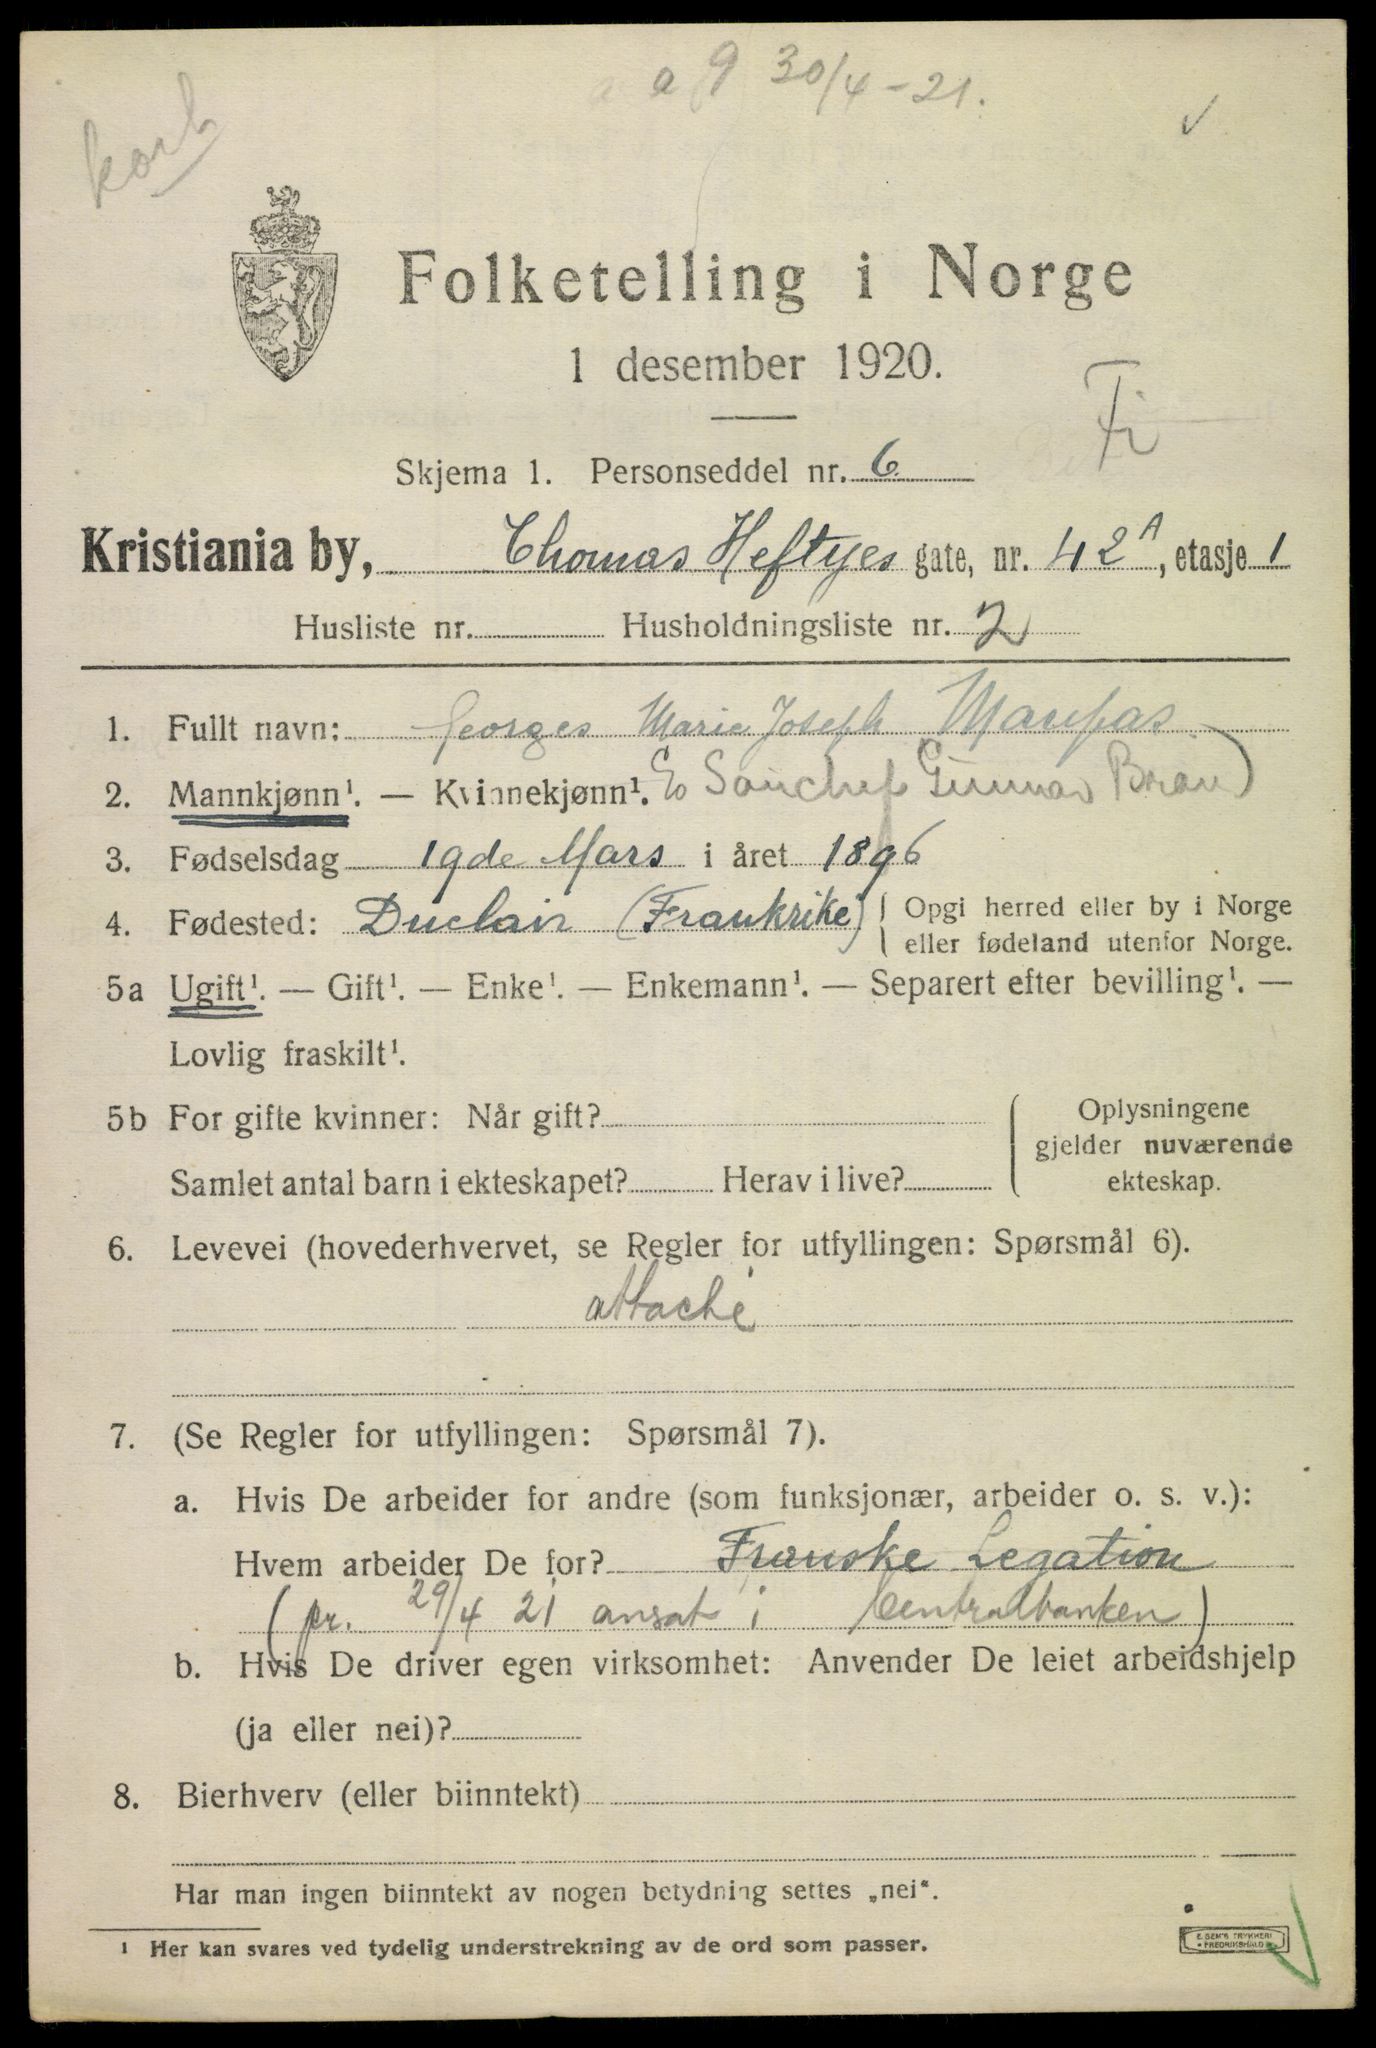 a 9 30/4-21.
Folketelling i Norge
1 desember 1920.
Fi
Skjema 1. Personseddel nr. 6
Kristiania by, Thomas Heftyes gate, nr. 42A, etasje 1
Husliste nr. Husholdningsliste nr. 2
1. Fullt navn: Georges Marie Joseph Maupas.
2. Mannkjønn¹. — Kvinnekjønn¹. Gunnar
3. Fødselsdag 19de Mars i året 1896
4. Fødested: Duclair (Frankrike) Opgi herred eller by i Norge
eller fødeland utenfor Norge.
5a Ugift¹. — Gift¹. — Enke¹. — Enkemann¹. — Separert efter bevilling¹. —
Lovlig fraskilt¹.
5b For gifte kvinner: Når gift?
Samlet antal barn i ekteskapet? Herav i live?
Oplysningene
gjelder nuværende
ekteskap.
6. Levevei (hovederhvervet, se Regler for utfyllingen: Spørsmål 6).
attaché
7. (Se Regler for utfyllingen: Spørsmål 7).
a. Hvis De arbeider for andre (som funksjonær, arbeider o. s. v.):
Hvem arbeider De for? Franske Legation
(pr. 29/4 21 ansat i Centralbanken)
b. Hvis De driver egen virksomhet: Anvender De leiet arbeidshjelp
(ja eller nei)?
8. Bierhverv (eller biinntekt)
Har man ingen biinntekt av nogen betydning settes „nei".
¹ Her kan svares ved tydelig understrekning av de ord som passer.
E. SEM'S TRYKKERI
FREDRIKSHALD